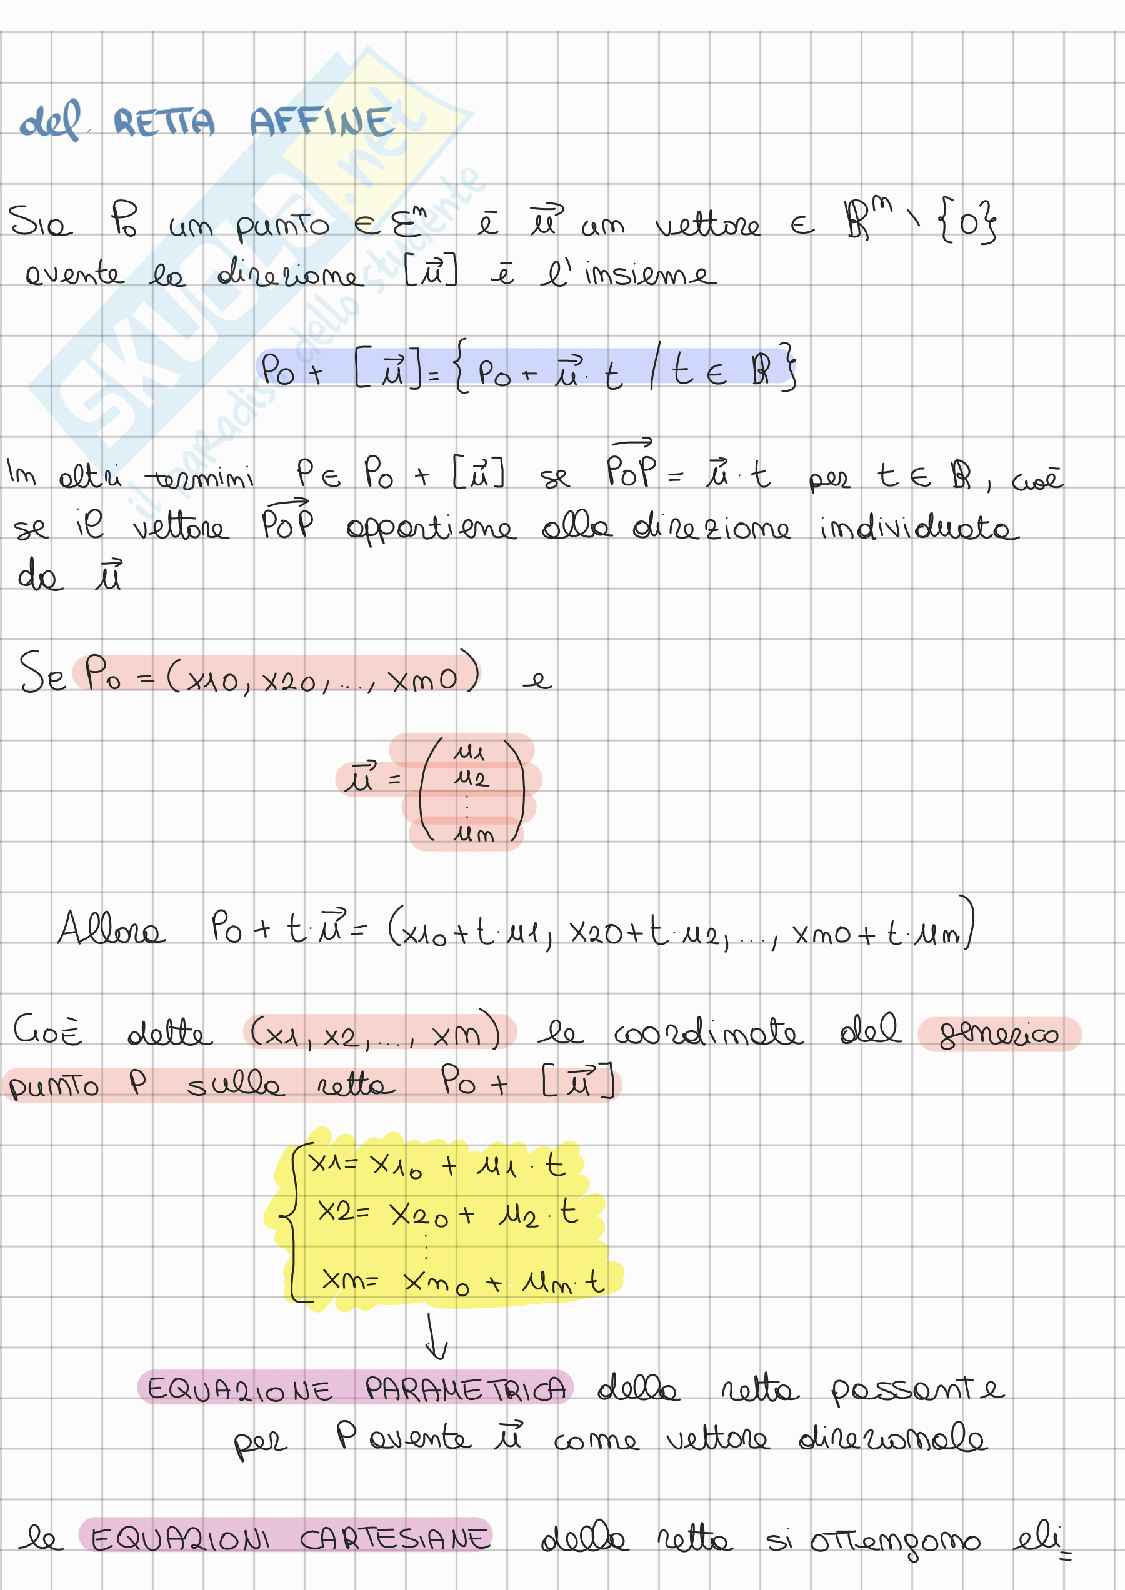 def. RETTA AFFINE
Sia P₀ un punto ∈ Ɛⁿ ē u⃗ un vettore ∈ ℝⁿ \ {0}
avente la direzione [u⃗] ē l'insieme
P₀ + [u⃗] = {P₀ + u⃗ · t / t ∈ ℝ}
In altri termini P ∈ P₀ + [u⃗] se P₀P⃗ = u⃗ · t per t ∈ ℝ, cioē
se il vettore P₀P⃗ appartiene alla direzione individuata
da u⃗
Se P₀ = (x10, x20, ..., xn0) e
u⃗ = (u1
u2
⋮
un)
Allora P₀ + t · u⃗ = (x1₀ + t · u1, x20 + t · u2, ..., xn0 + t · un)
Cioē dette (x1, x2, ..., xn) le coordinate del generico
punto P sulla retta P₀ + [u⃗]
x1 = x1₀ + u1 · t
x2 = x2₀ + u2 · t
⋮
xn = xn₀ + un · t
↓
EQUAZIONE PARAMETRICA della retta passante
per P avente u⃗ come vettore direzionale
le EQUAZIONI CARTESIANE della retta si ottengono eli=
SKUOLA.net
il paradiso dello studente